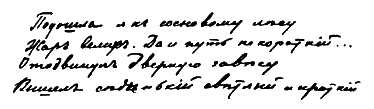 Подошла я къ сосновому лѣсу
Жаръ свалилъ. Да и путь не короткій...
Отодвинулъ дверную завѣсу
Вышелъ сѣденькій свѣтлый и кроткій